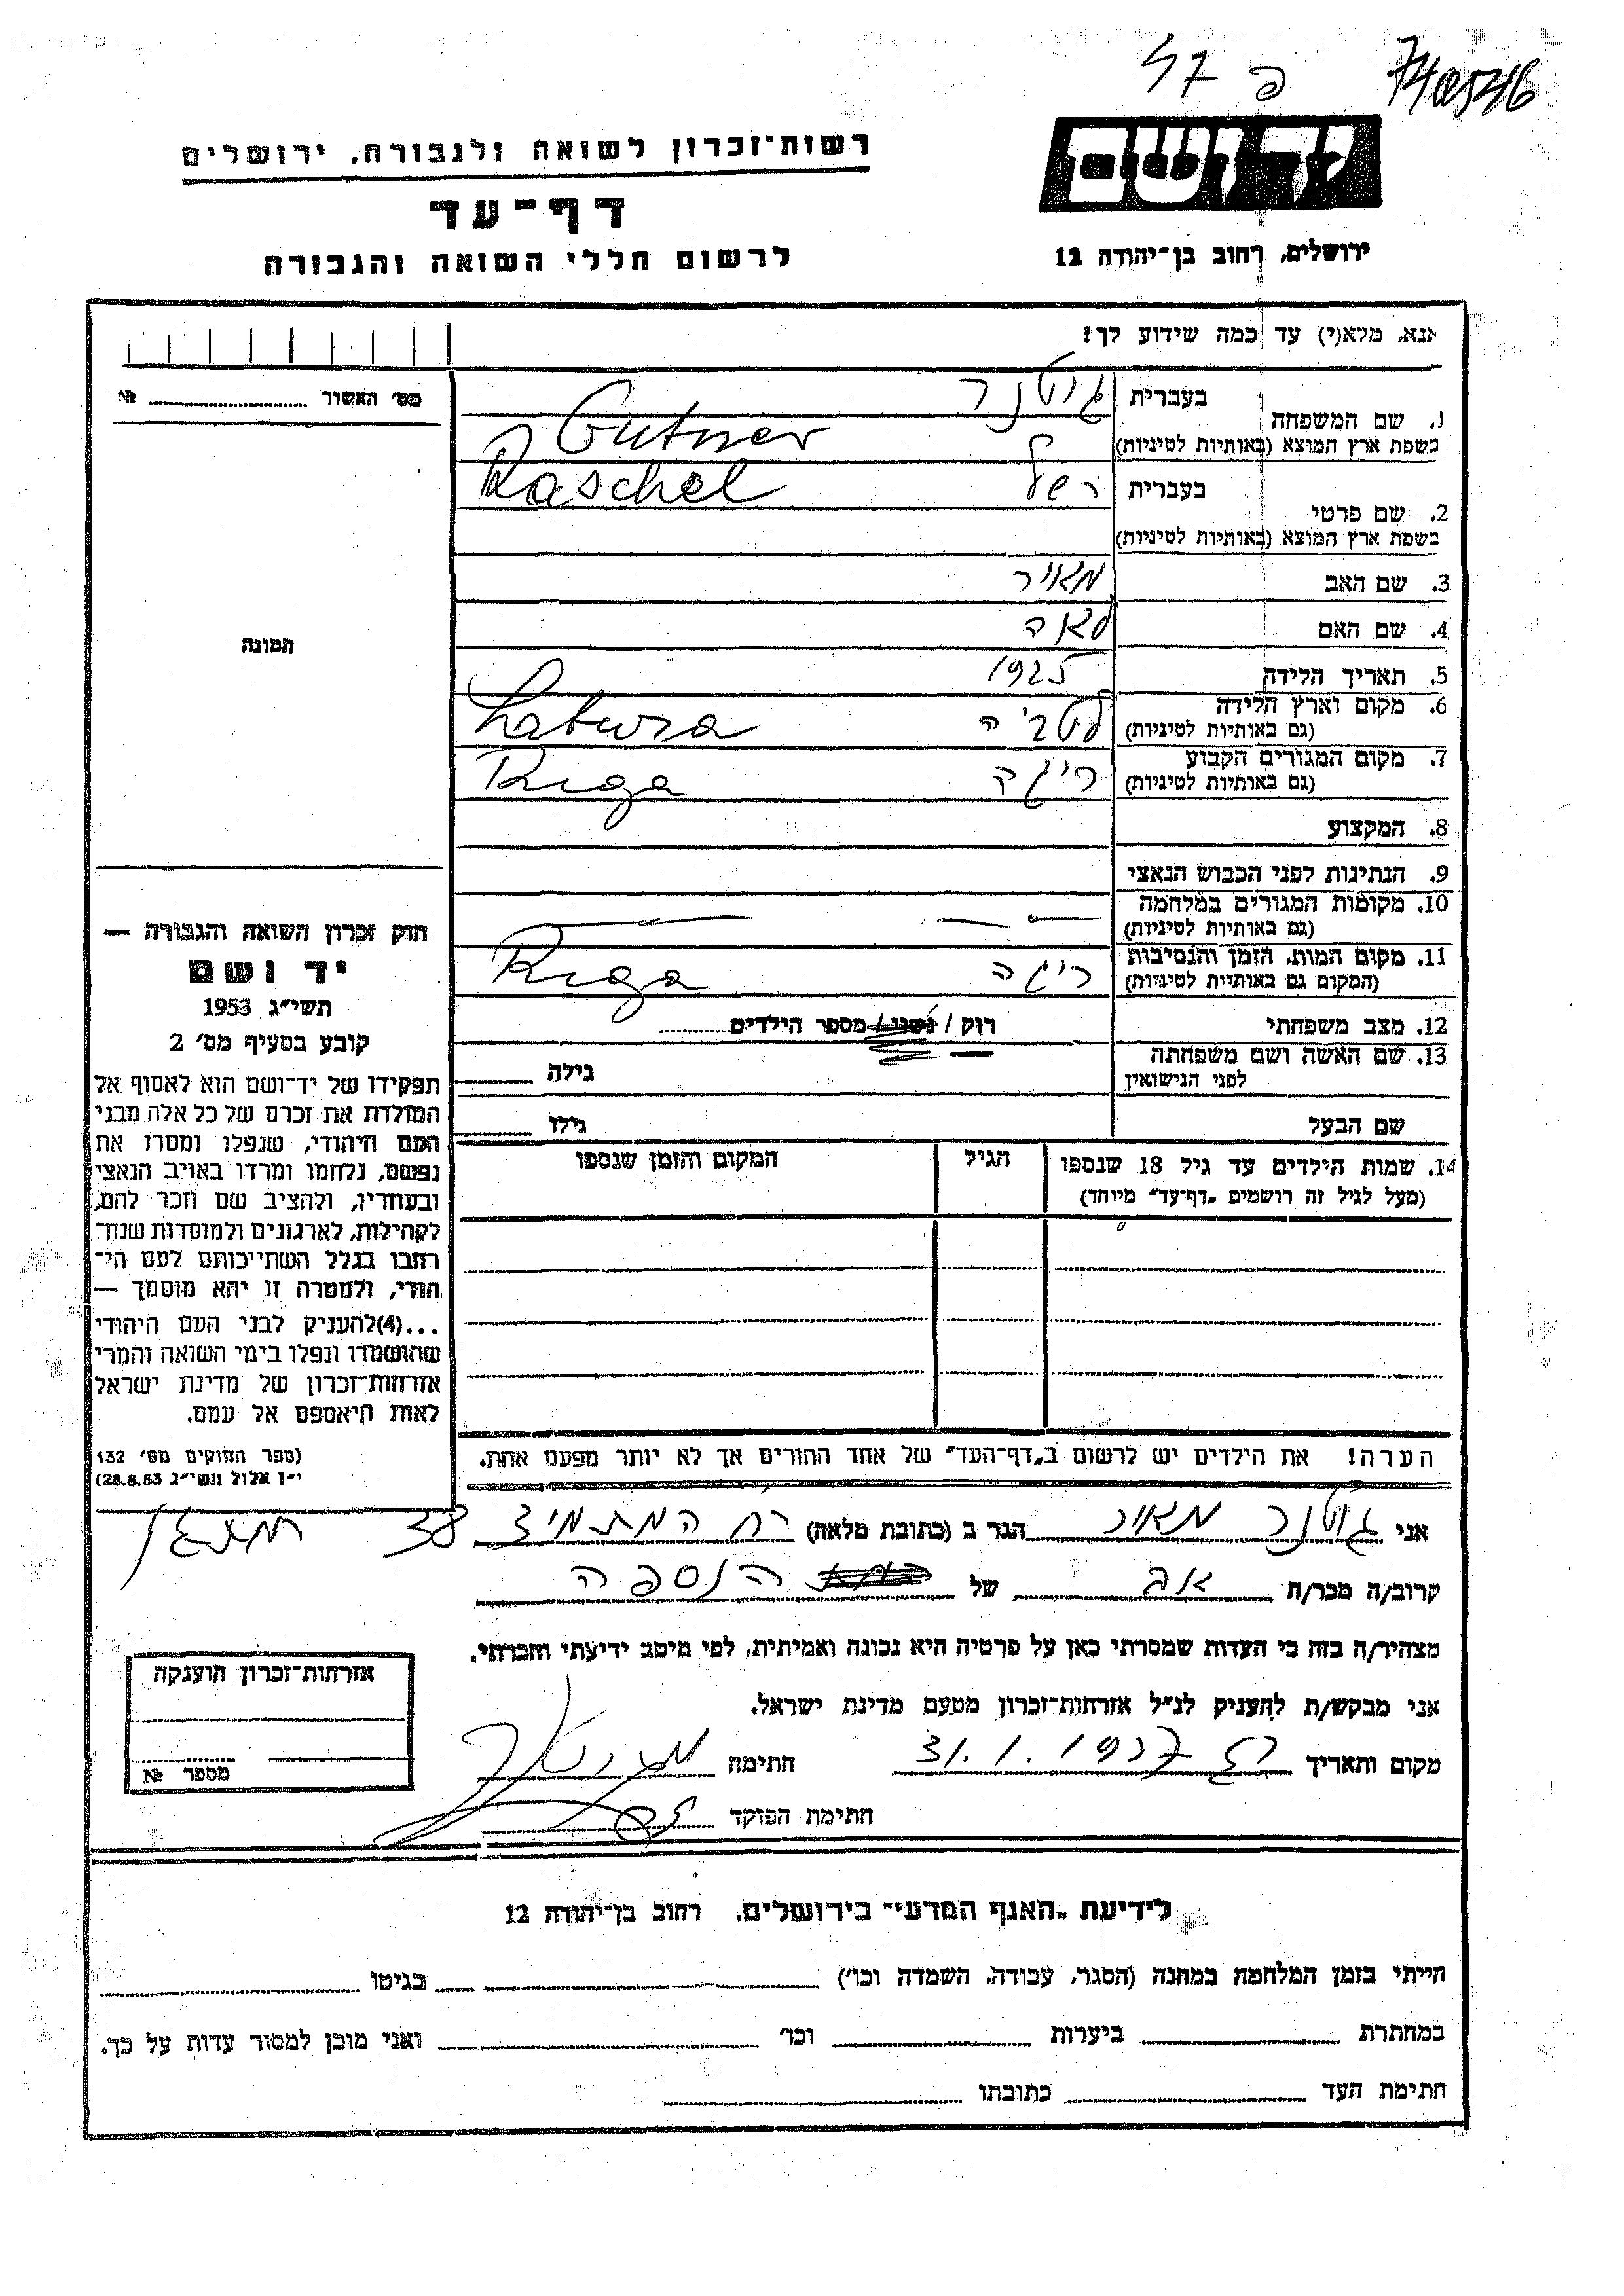 740546
יד ושם
רשות־זכרון לשואה ולגבורה, ירושלים
דף־עד
לרשום חללי השואה והגבורה
ירושלים, רחוב בן־יהודה 12
אנא, מלא(י) עד כמה שידוע לך!
מס׳ האשור № 
תמונה
1. שם המשפחה בעברית גוטנר
בשפת ארץ המוצא (באותיות לטיניות) Gutner
2. שם פרטי בעברית רשל Raschel
בשפת ארץ המוצא (באותיות לטיניות)
3. שם האב מאיר
4. שם האם לאה
5. תאריך הלידה 1925
6. מקום וארץ הלידה
(גם באותיות לטיניות)
7. מקום המגורים הקבוע ריגה Riga
(גם באותיות לטיניות)
8. המקצוע
9. הנתינות לפני הכבוש הנאצי
10. מקומות המגורים במלחמה
(גם באותיות לטיניות)
11. מקום המות, הזמן והנסיבות ריגה Riga
(המקום גם באותיות לטיניות)
12. מצב משפחתי רוק / נשוי / מספר הילדים
13. שם האשה ושם משפחתה גילה
לפני הנישואין
שם הבעל גילו
14. שמות הילדים עד גיל 18 שנספו הגיל המקום והזמן שנספו
(מעל לגיל זה רושמים „דף־עד״ מיוחד)
חוק זכרון השואה והגבורה —
יד ושם
תשי״ג 1953
קובע בסעיף מס׳ 2
תפקידו של יד־ושם הוא לאסוף אל
המולדת את זכרם של כל אלה מבני
העם היהודי, שנפלו ומסרו את
נפשם, נלחמו ומרדו באויב הנאצי
ובעוזריו, ולהציב שם וזכר להם,
לקהילות, לארגונים ולמוסדות שנח־
רבו בגלל השתייכותם לעם הי־
הודי, ולמטרה זו יהא מוסמך —
...(4)להעניק לבני העם היהודי
שהושמדו ונפלו בימי השואה והמרי
אזרחות־זכרון של מדינת ישראל
לאות היאספם אל עמם.
(ספר החוקים מס׳ 132
י״ז אלול תשי״ג 28.8.53)
הערה! את הילדים יש לרשום ב„דף־העד״ של אחד ההורים אך לא יותר מפעם אחת.
אני גוטנר מאיר הגר ב (כתובת מלאה) רח המתמיד 38
קרוב/ה מכר/ה אב של הנספה
מצהיר/ה בזה כי העדות שמסרתי כאן על פרטיה היא נכונה ואמיתית, לפי מיטב ידיעתי והכרתי.
אני מבקש/ת להעניק לנ״ל אזרחות־זכרון מטעם מדינת ישראל.
מקום ותאריך רג 31.1.1957 חתימה
חתימת הפוקד
אזרחות־זכרון הוענקה
מספר №
לידיעת „האגף המדעי״ בירושלים, רחוב בן־יהודה 12
הייתי בזמן המלחמה במחנה (הסגר, עבודה, השמדה וכו׳) בגיטו
במחתרת ביערות וכו׳ ואני מוכן למסור עדות על כך.
חתימת העד כתובתו